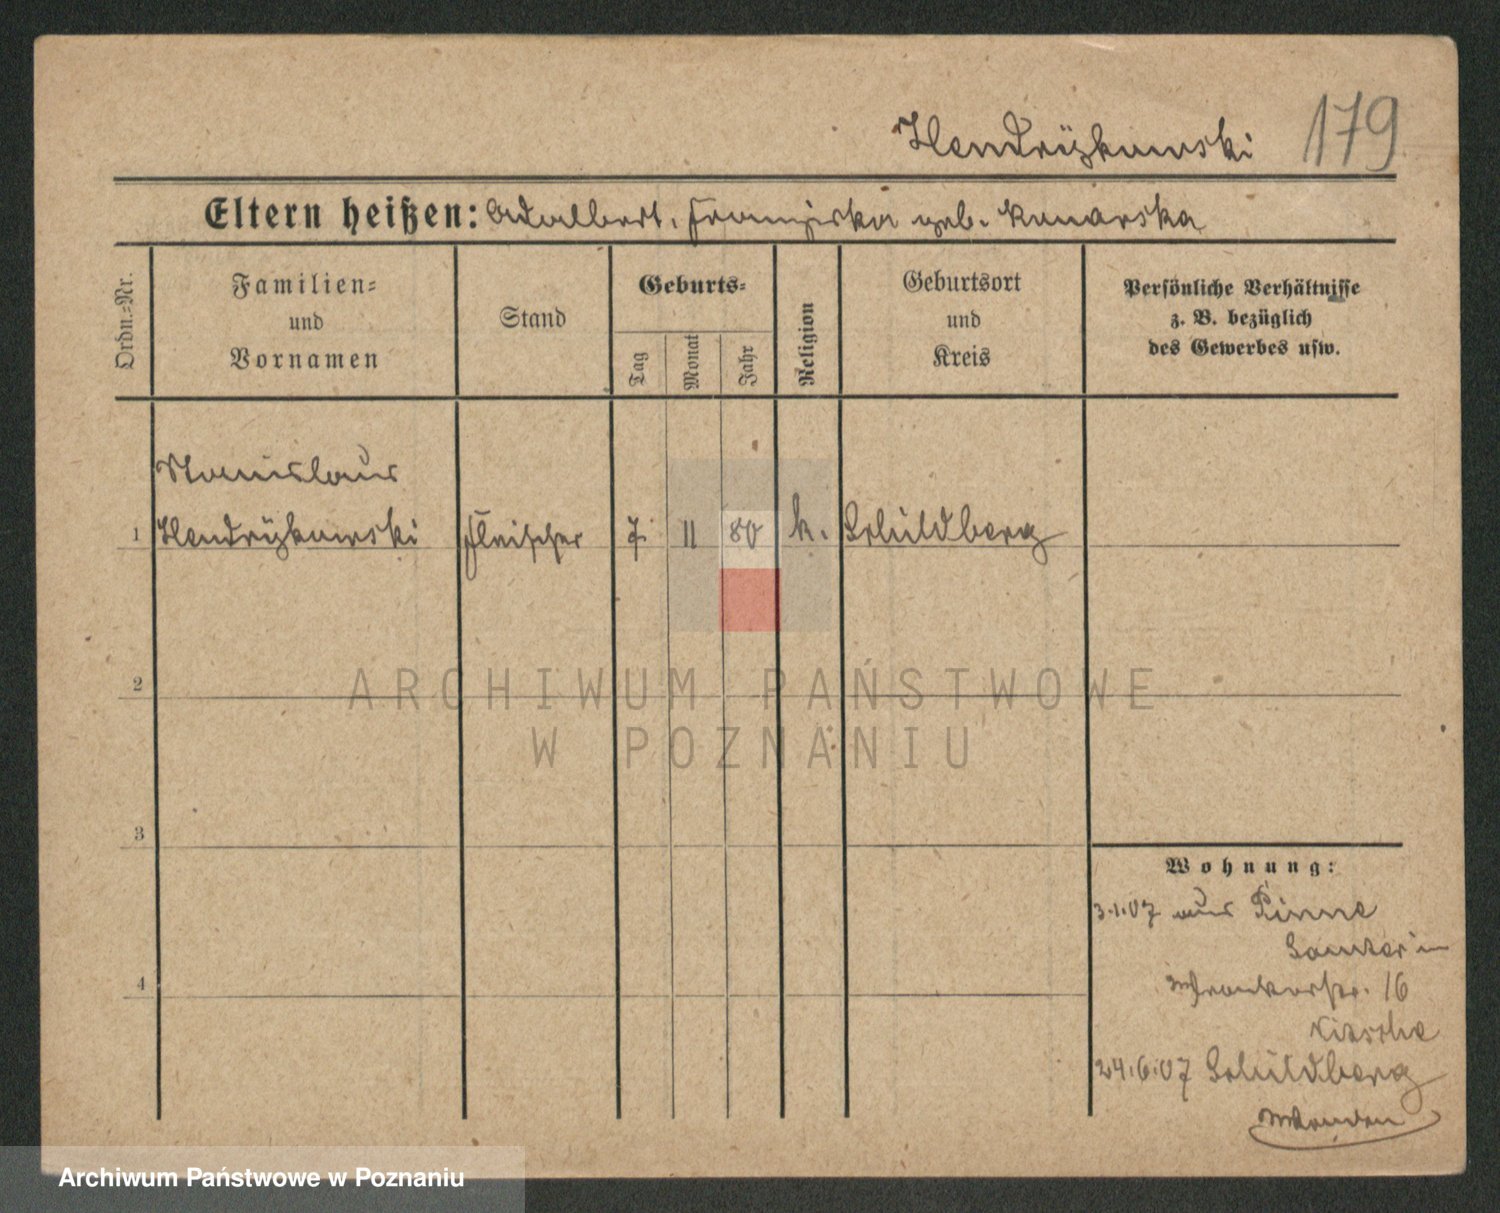 Hendrÿkowski 179
Eltern heißen: Adalbert, Franziska geb. Konarska
Ordn.-Nr.
Familien-
und
Vornamen
Stand
Geburts-
Tag
Monat
Jahr
Religion
Geburtsort
und
Kreis
Persönliche Verhältnisse
z. B. bezüglich
des Gewerbes usw.
Stanislaus
1 Hendrÿkowski Fleischer 7 11 80 k. Schildberg
2
3
4
Wohnung:
3.1.07 aus Pinne
Samter
16
24.6.07 Schildberg
Wenden
ARCHIWUM PAŃSTWOWE
W POZNANIU
Archiwum Państwowe w Poznaniu